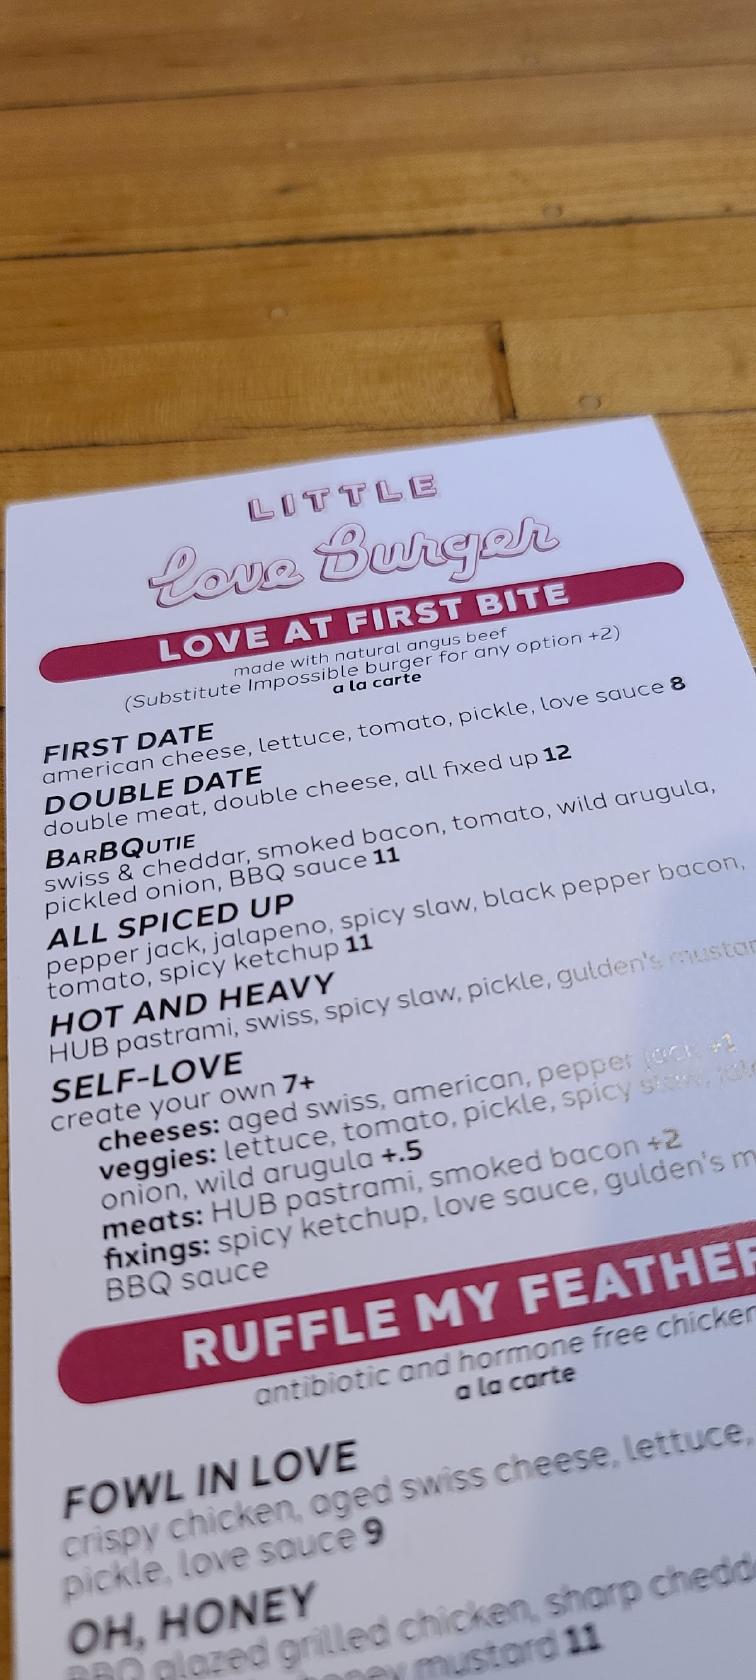 LITTLE
Love Burger
LOVE AT FIRST BITE
made with natural angus beef
(Substitute Impossible burger for any option +2)
a la carte
FIRST DATE
american cheese, lettuce, tomato, pickle, love sauce 8
DOUBLE DATE
double meat, double cheese, all fixed up 12
BARBQUTIE
swiss & cheddar, smoked bacon, tomato, wild arugula,
pickled onion, BBQ sauce 11
ALL SPICED UP
pepper jack, jalapeno, spicy slaw, black pepper bacon,
tomato, spicy ketchup 11
HOT AND HEAVY
HUB pastrami, swiss, spicy slaw, pickle, gulden's
SELF-LOVE
create your own 7+
cheeses: aged swiss, american, pepper jack +1
veggies: lettuce, tomato, pickle, spicy slaw,
onion, wild arugula +.5
meats: HUB pastrami, smoked bacon +2
fixings: spicy ketchup, love sauce, gulden's
BBQ sauce
RUFFLE MY FEATHER
antibiotic and hormone free chicken
a la carte
FOWL IN LOVE
crispy chicken, aged swiss cheese, lettuce,
pickle, love sauce 9
OH, HONEY
BBQ glazed grilled chicken, sharp
honey mustard 11